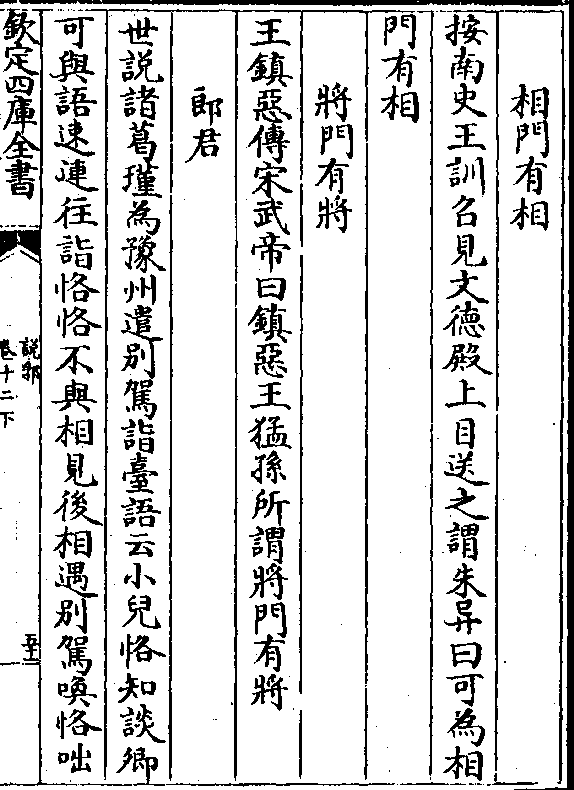 相門有相
按南史王訓召見文德殿上目送之謂朱异曰可為相
門有相
將門有將
王鎮惡傳宋武帝曰鎮惡王猛孫所謂將門有將
郎君
世説諸葛瑾為豫州遣别駕詣臺語云小兒恪知談卿
可與語速連往詣恪恪不與相見後相遇别駕喚恪咄
欽定四庫全書
説郛
卷十二下